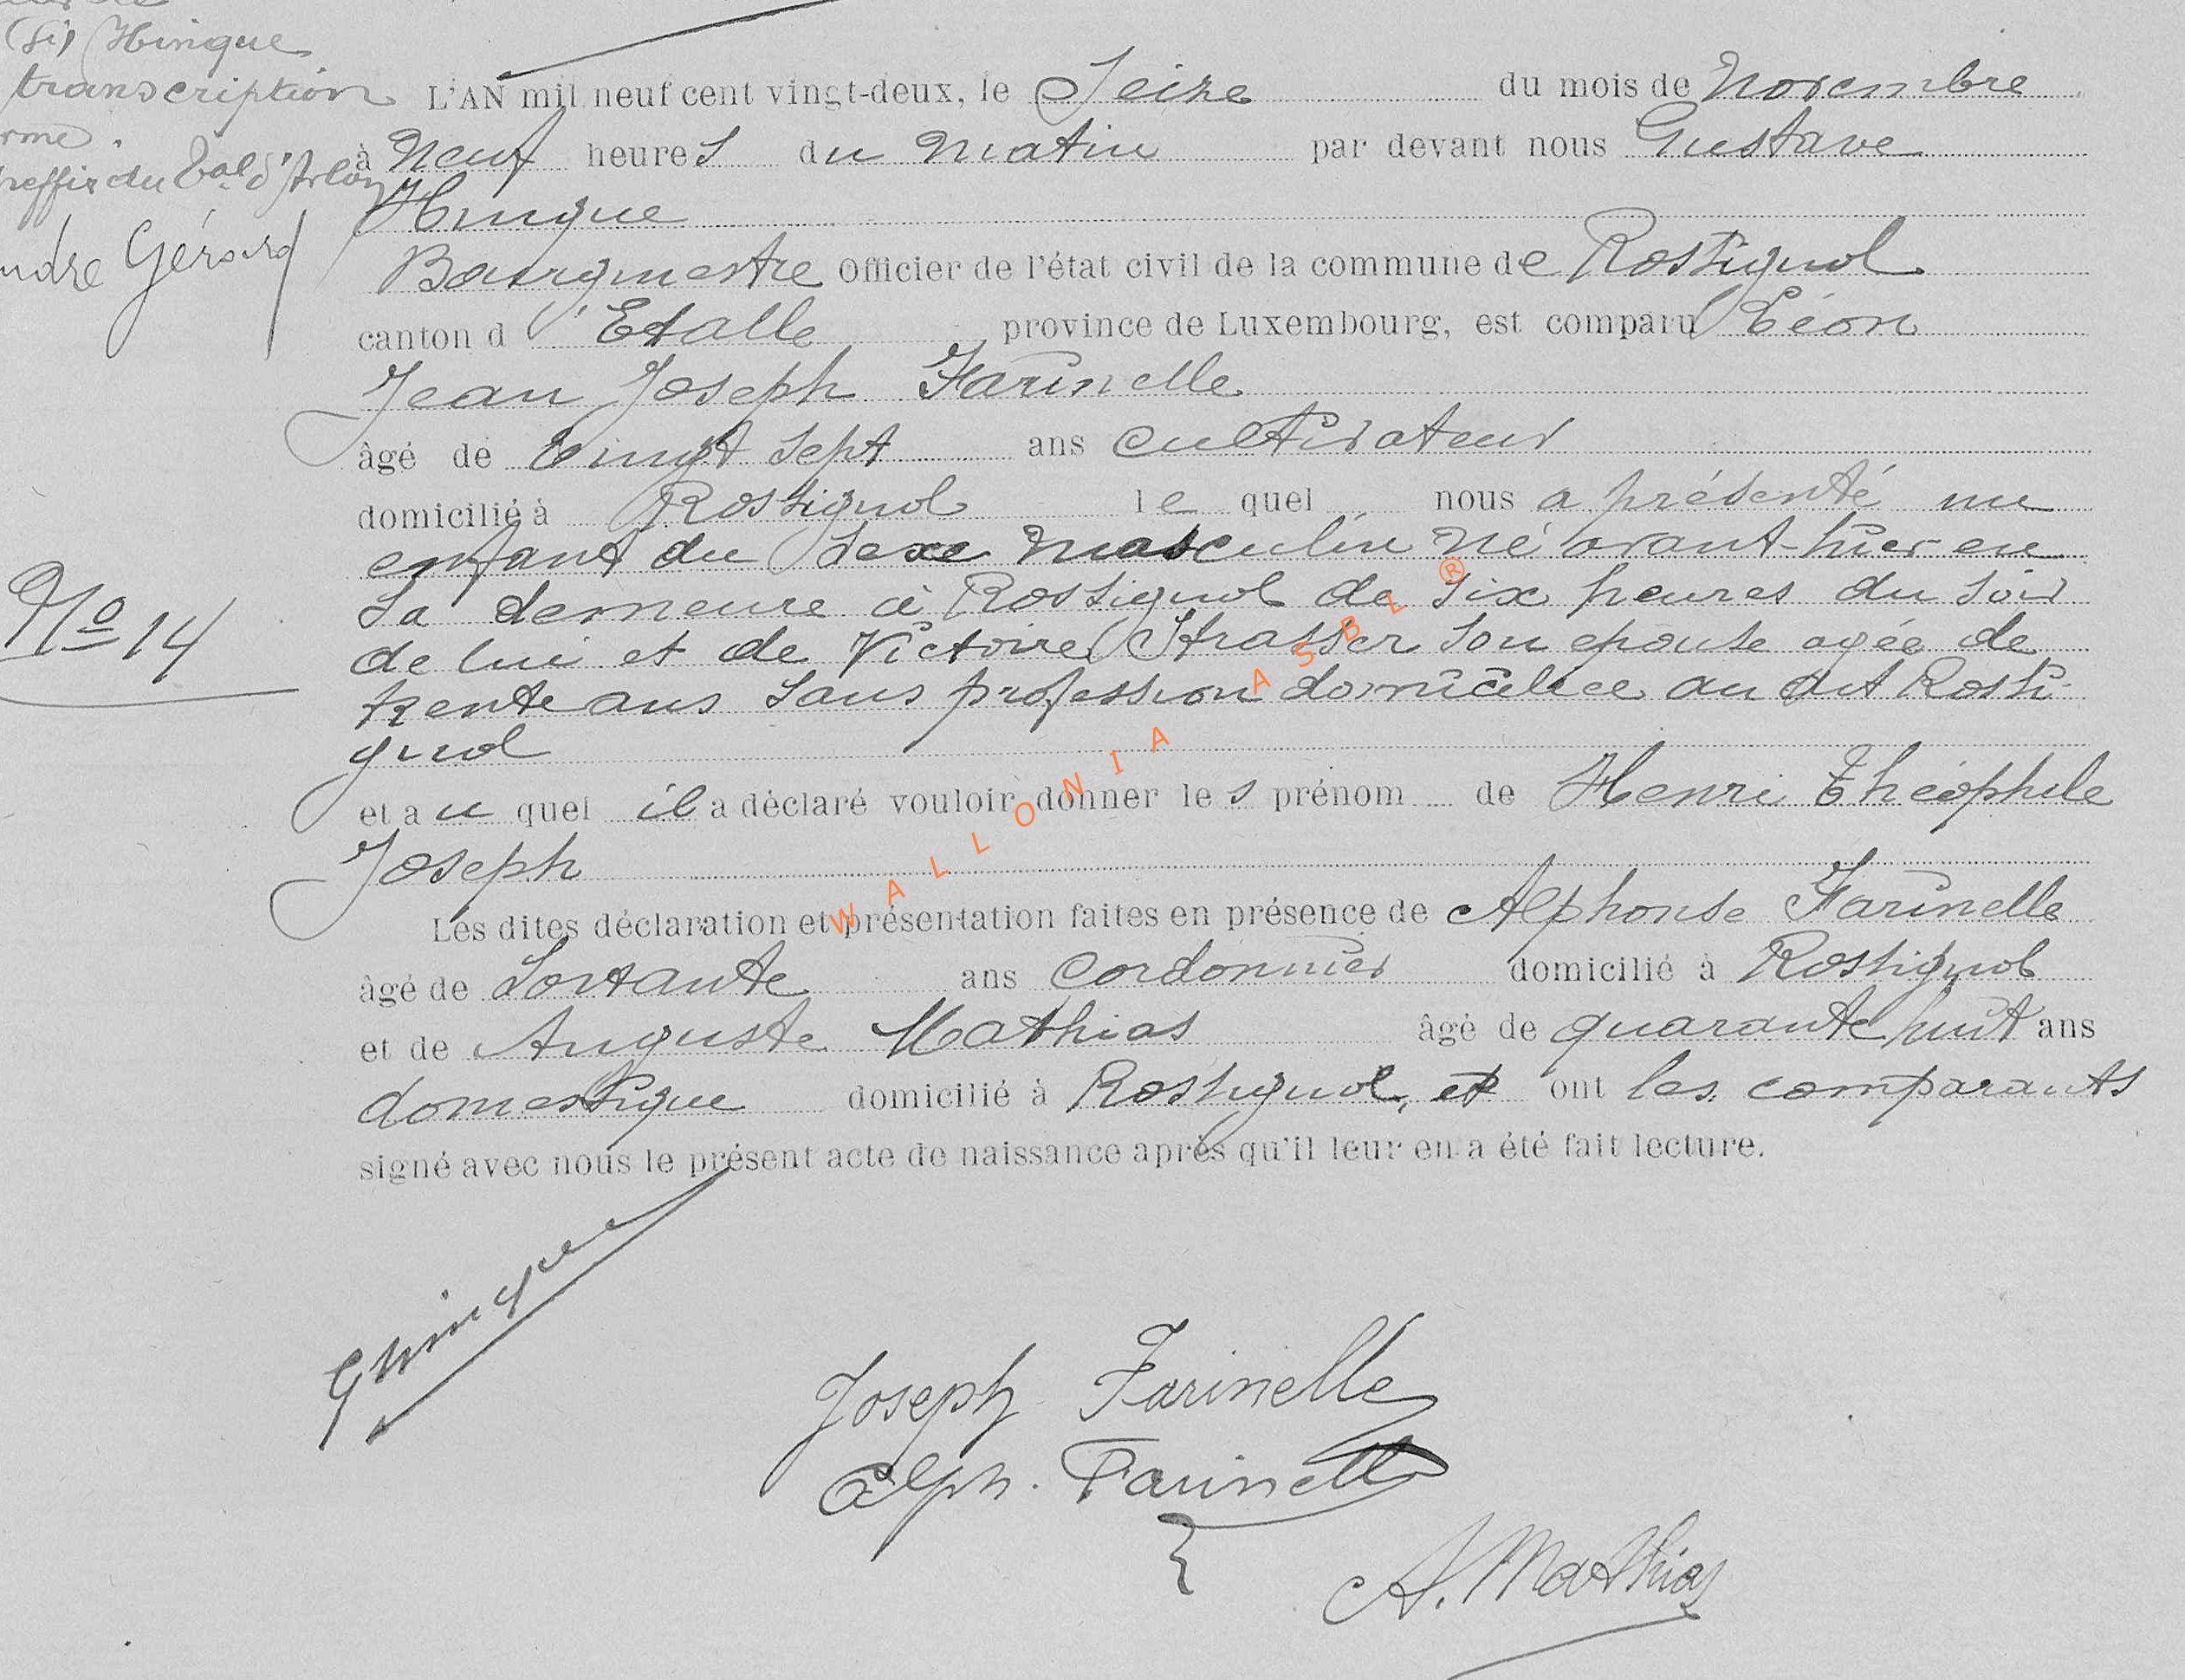 (Si) Hinque
transcription
L'AN mil neuf cent vingt-deux, le Seize du mois de Novembre
à Neuf heures du matin par devant nous Gustave
greffir du Bal d'Arlon
Hinque
Gérard
Bourgmestre Officier de l'état civil de la commune de Rossignol
canton d'Etalle province de Luxembourg, est comparu Léon
Jean Joseph Farinelle
âgé de vingt sept ans cultivateur
domicilié à Rossignol lequel nous a présenté un
enfant du sexe masculin né avant-hier en
sa demeure à Rossignol de six heures du soir
No 14
de lui et de Victoire Strasser son epouse agée de
trente ans sans profession domiciliée au dit Rossi-
gnol
et au quel il a déclaré vouloir donner les prénom de Henri Théophile
Joseph
Les dites déclaration et présentation faites en présence de Alphonse Farinelle
âgé de soixante ans cordonnier domicilié à Rossignol
et de Auguste Mathias âgé de quarante huit ans
domestique domicilié à Rossignol, et ont les comparants
signé avec nous le présent acte de naissance après qu'il leur en a été fait lecture.
GHinque
Joseph Farinelle
Alph. Farinelle
A. Mathias
WALLONIA ASBL ®